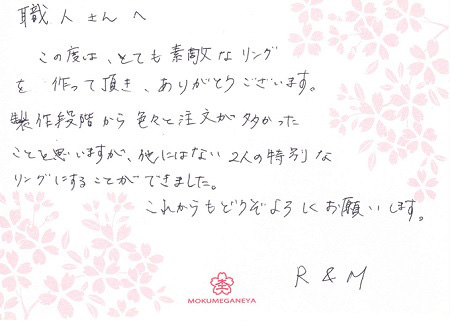 職人さんへ
この度は、とても素敵なリング
を作って頂き、ありがとうございます。
製作段階から色々と注文が多かった
ことと思いますが、他にはない2人の特別な
リングにすることができました。
これからもどうぞよろしくお願いします。
R & M
MOKUMEGANEYA